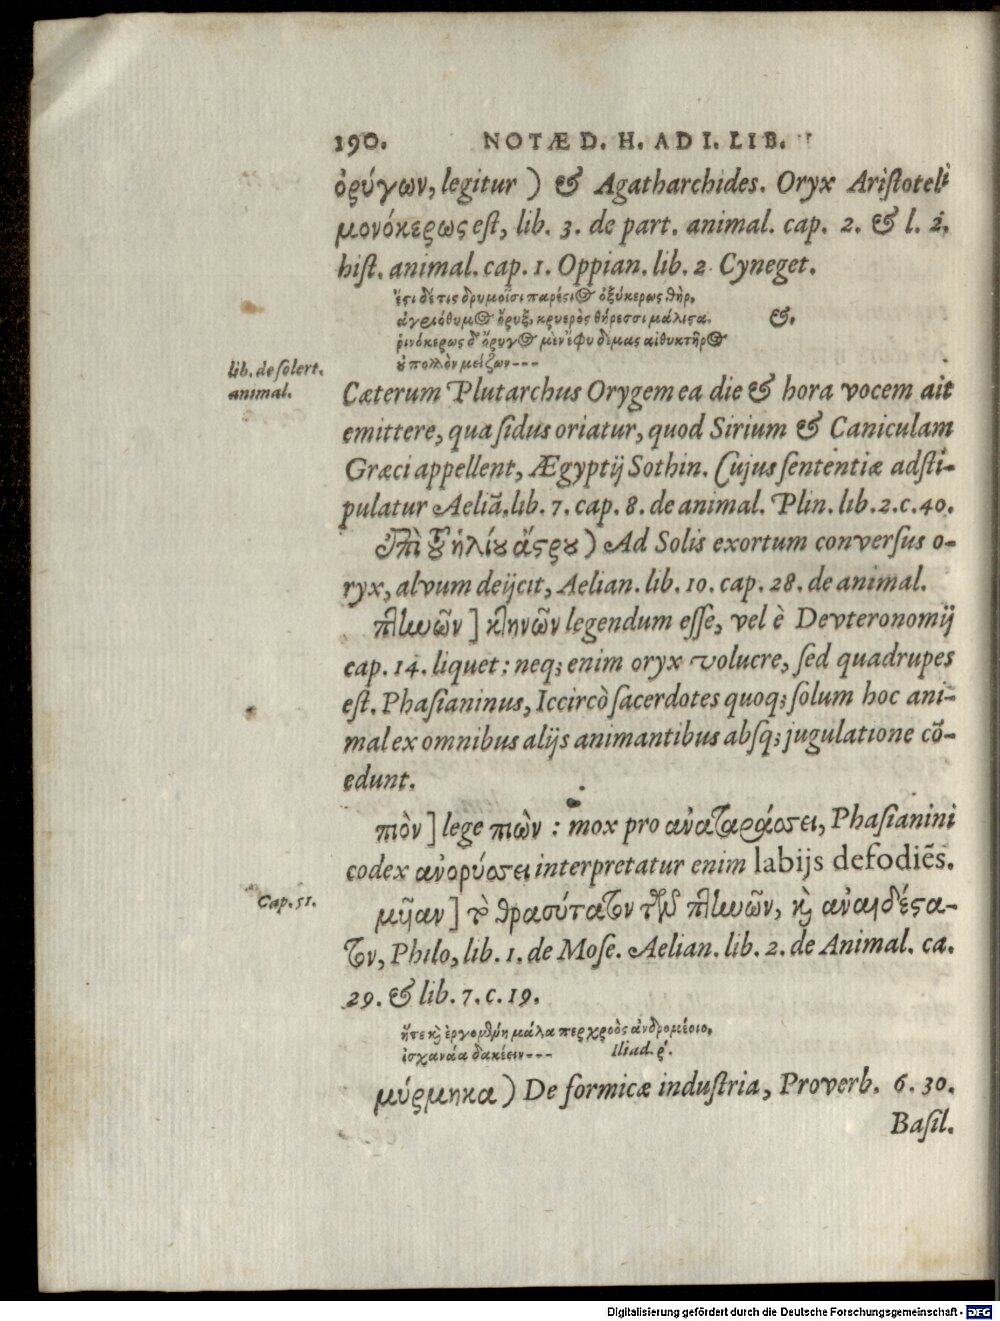 190. NOTÆ D. H. AD I. LIB.
ὀρύγων, legitur ) & Agatharchides. Oryx Aristoteli
μονόκερως est, lib. 3. de part. animal. cap. 2. & l. 2.
hist. animal. cap. 1. Oppian. lib. 2 Cyneget.
ἔστι δέ τις δρυμοῖσι παρέστιος ὀξύκερως θὴρ,
ἀγριόθυμος ὄρυξ, κρυερὸς θήρεσσι μάλιστα. &.
ῥινόκερως δ' ὄρυγος μὲν ἔφυ δέμας αἰθυκτῆρος
οὐ πολλὸν μείζων---
lib. de solert.
animal.
Cæterum Plutarchus Orygem ea die & hora vocem ait
emittere, qua sidus oriatur, quod Sirium & Caniculam
Græci appellent, Ægyptij Sothin. Cujus sententiæ adsti-
pulatur Aeliā. lib. 7. cap. 8. de animal. Plin. lib. 2. c. 40.
ἐπὶ τοῦ ἡλίου ἄστρου ) Ad Solis exortum conversus o-
ryx, alvum deijcit, Aelian. lib. 10. cap. 28. de animal.
πτηνῶν ] κτηνῶν legendum esse, vel è Devteronomij
cap. 14. liquet: neq; enim oryx volucre, sed quadrupes
est. Phasianinus, Iccircò sacerdotes quoq; solum hoc ani-
mal ex omnibus alijs animantibus absq; jugulatione cō-
edunt.
πιὸν ] lege πιὼν : mox pro ἀναταράσσει, Phasianini
codex ἀνορύσσει interpretatur enim labijs defodiēs.
Cap. 51.
μῦαν ] τὸ θρασύτατον τῶν πτηνῶν, καὶ ἀναιδέστα-
τον, Philo, lib. 1. de Mose. Aelian. lib. 2. de Animal. ca.
29. & lib. 7. c. 19.
ἥτε καὶ ἐργομένη μάλα περ χροὸς ἀνδρομέοιο,
ἰσχανάα δακέειν--- Iliad. ρ'.
μύρμηκα ) De formicæ industria, Proverb. 6. 30.
Basil.
Digitalisierung gefördert durch die Deutsche Forschungsgemeinschaft - DFG